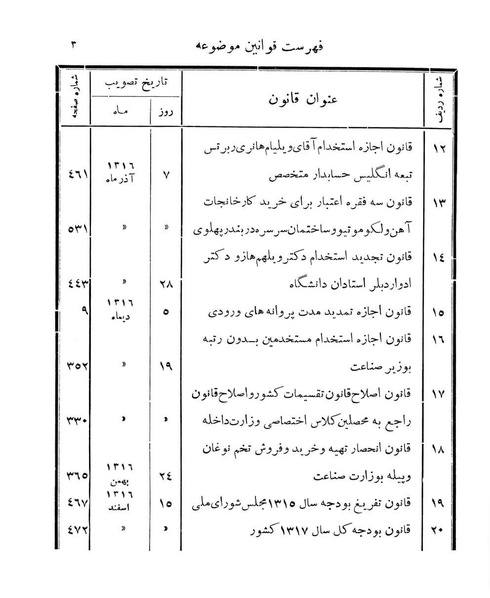 فهرست قوانین موضوعه ۳
شماره ردیف عنوان قانون تاریخ تصویب شماره صفحه
روز ماه
۱۲ قانون اجازه استخدام آقای ویلیام هانری ربرتس
تبعه انگلیس حسابدار متخصص ۷ ۱۳۱۶ آذرماه ٤٦١
۱۳ قانون سه فقره اعتبار برای خرید کارخانجات
آهن ولکوموتیو و ساختمان سرسره در بندر پهلوی » » ۵۳۱
۱٤ قانون تجدید استخدام دکتر ویلهم هازو دکتر
ادوارد بلر استادان دانشگاه ۲۸ » ٤٤۳
۱۵ قانون اجازه تمدید مدت پروانه های ورودی ۵ ۱۳۱۶ دیماه ۹
۱۶ قانون اجازه استخدام مستخدمین بدون رتبه
بوزیر صناعت ۱۹ » ۳۵۲
۱۷ قانون اصلاح قانون تقسیمات کشور و اصلاح قانون
راجع به محصلین کلاس اختصاصی وزارت داخله » » ۳۳۰
۱۸ قانون انحصار تهیه و خرید و فروش تخم نوغان
وپیله بوزارت صناعت ۲٤ ۱۳۱۶ بهمن ۳۶۵
۱۹ قانون تفریغ بودجه سال ۱۳۱۵ مجلس شورای ملی ۱۵ ۱۳۱۶ اسفند ٤۶۷
۲۰ قانون بودجه کل سال ۱۳۱۷ کشور » » ٤۷۲